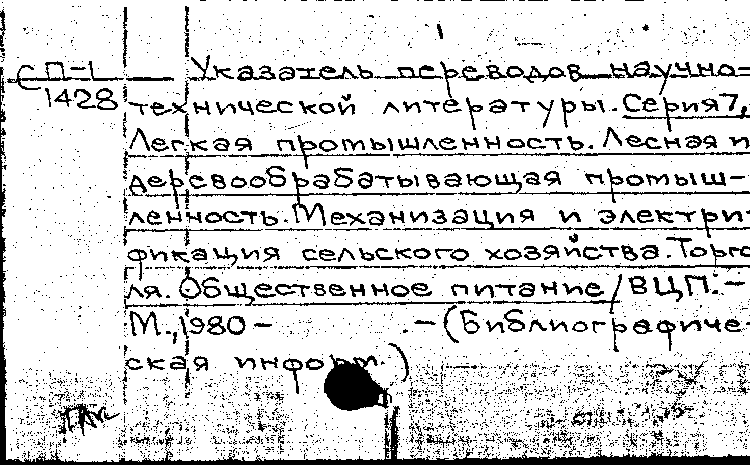 С П-1
1428
Указатель переводов научно-
технической литературы. Серия 7,
Легкая промышленность. Лесная и
деревообрабатывающая промыш-
ленность. Механизация и электри-
фикация сельского хозяйства. Торго
ля. Общественное питание / ВЦП. -
М., 1980 - . - (Библиографиче-
ская информ.)